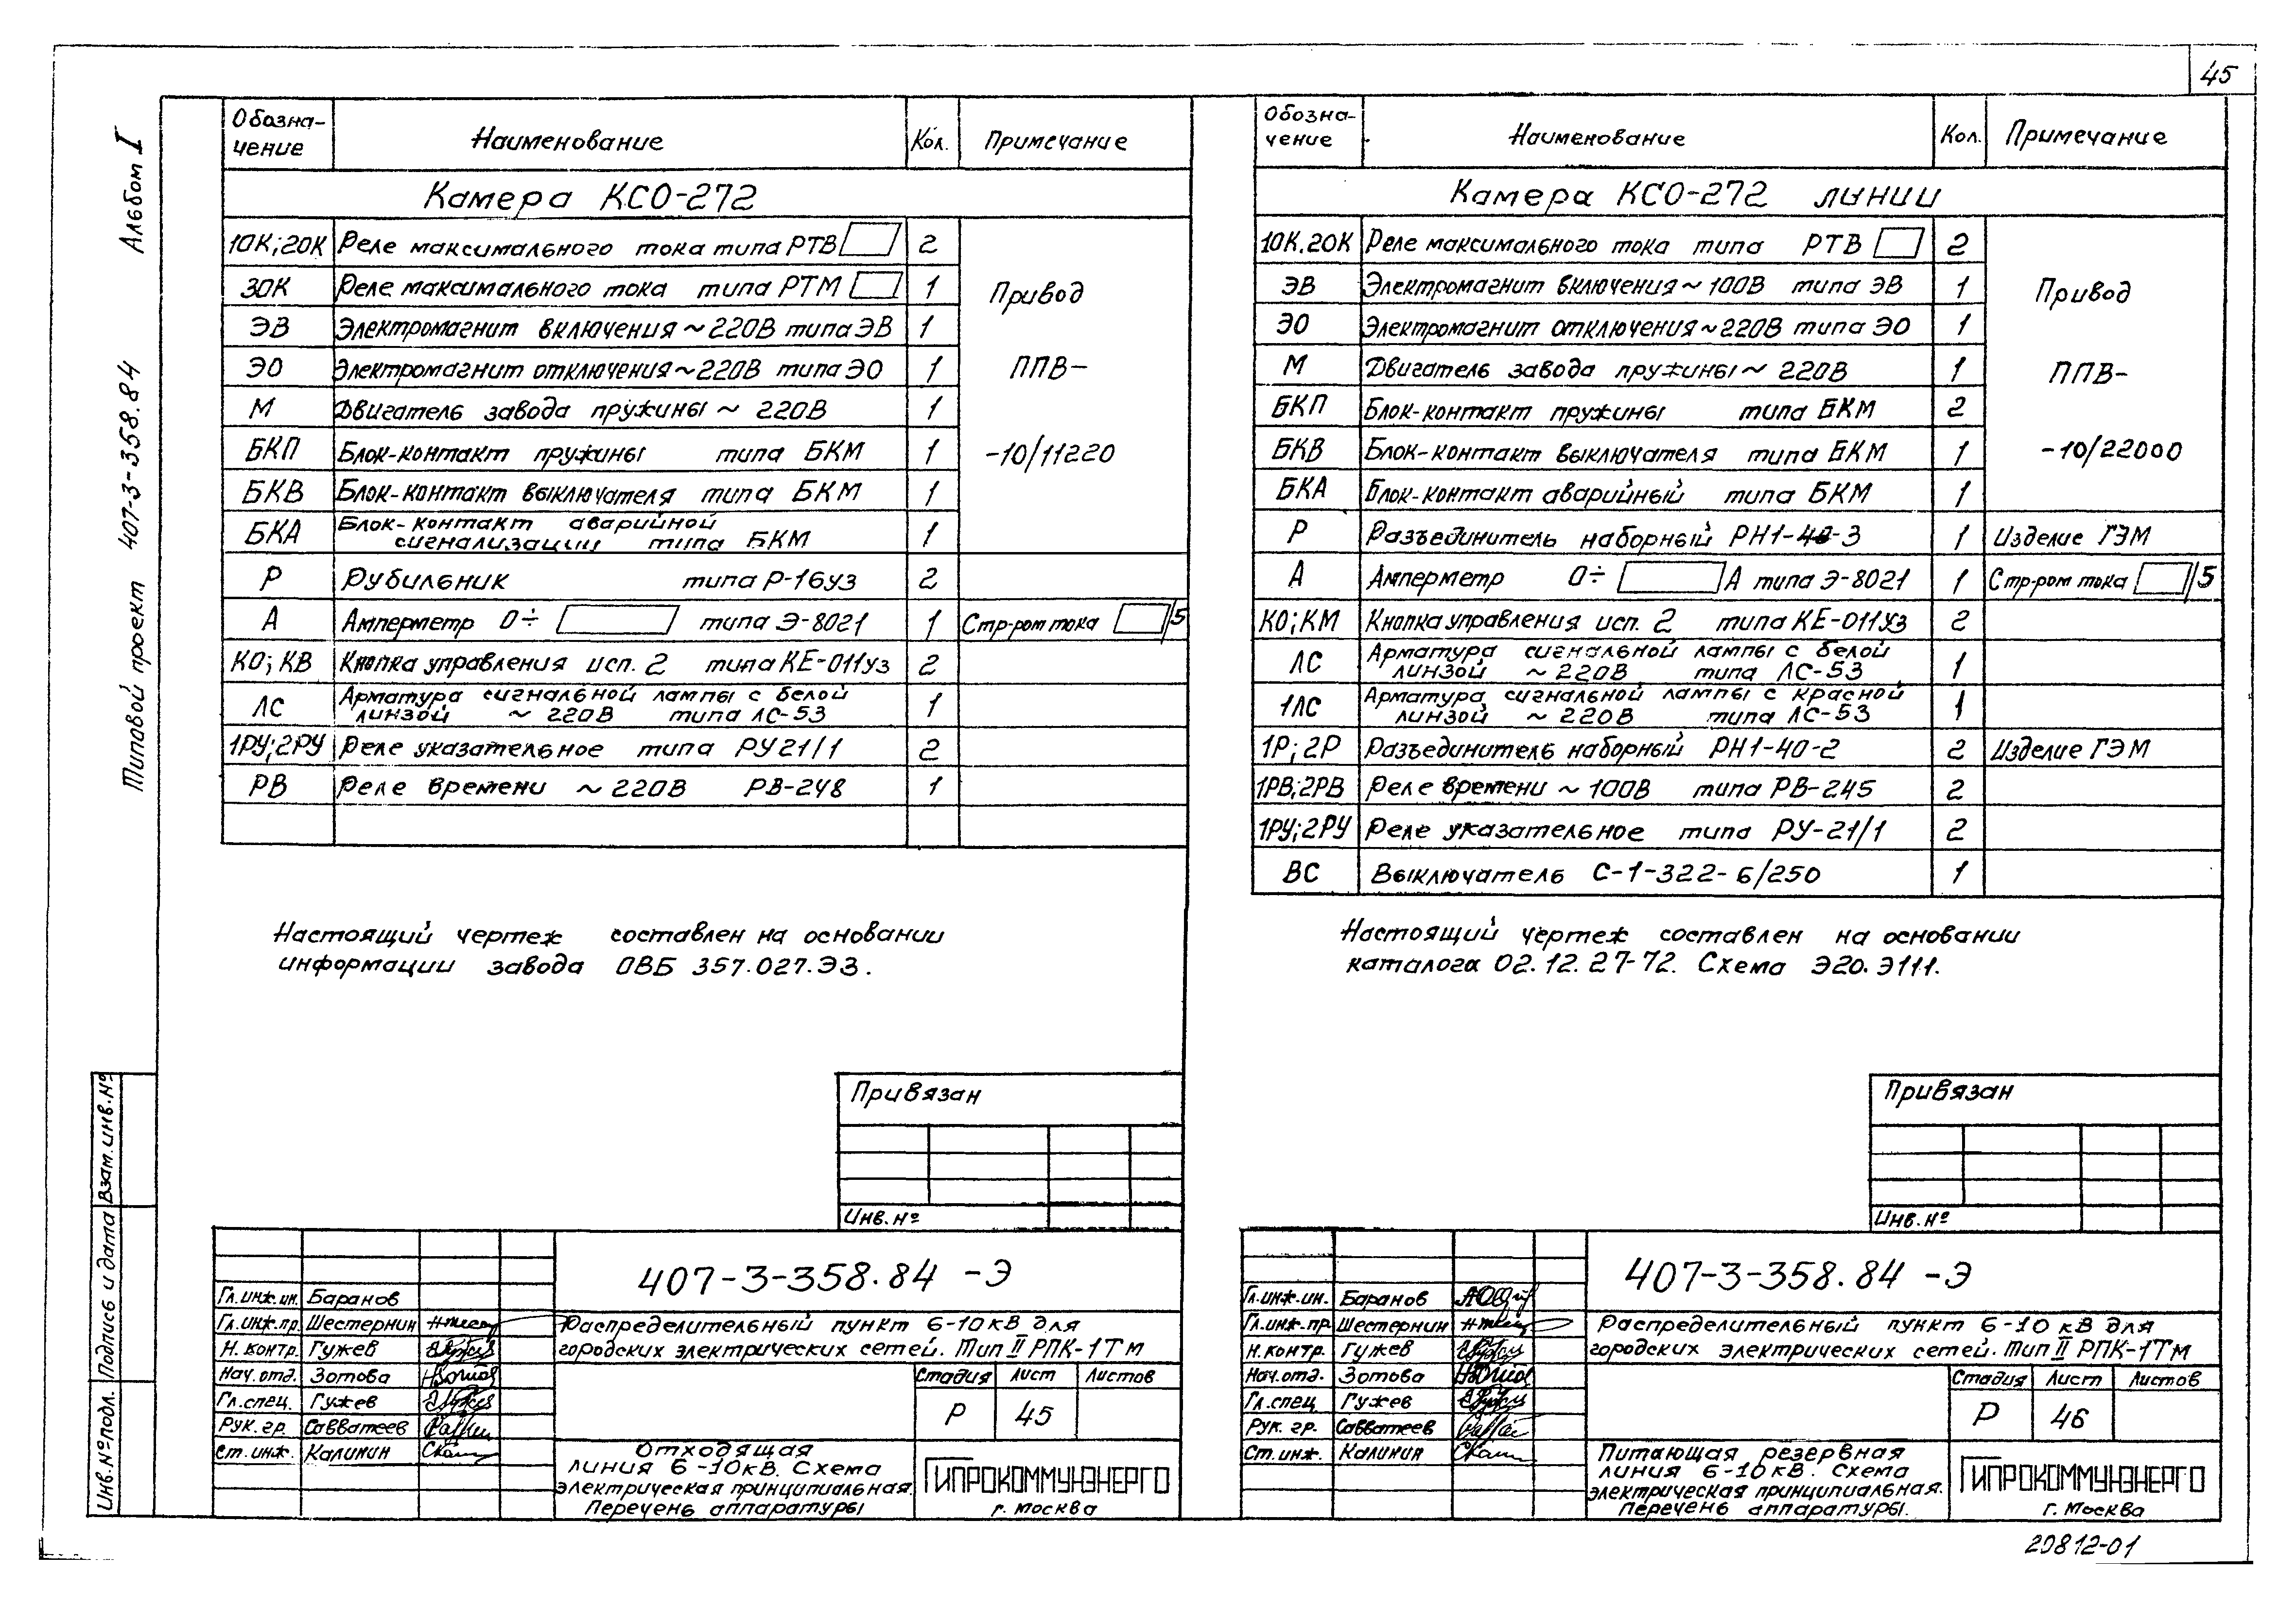 45
Альбом I
Типовой проект 407-3-358.84
Взам.инв.№
Подпись и дата
Инв.№подл.
Обозна-
чение
Наименование
Кол.
Примечание
Камера КСО-272
1ОК;2ОК Реле максимального тока типа РТВ 2
3ОК Реле максимального тока типа РТМ 1
Привод
ЭВ Электромагнит включения ~220В типа ЭВ 1
ЭО Электромагнит отключения ~220В типа ЭО 1
ППВ-
М Двигатель завода пружины ~ 220В 1
БКП Блок-контакт пружины типа БКМ 1
-10/11220
БКВ Блок-контакт выключателя типа БКМ 1
БКА Блок-контакт аварийной
сигнализации типа БКМ 1
Р Рубильник типа Р-16У3 2
А Амперметр 0÷ типа Э-8021 1 Стр-ром тока /5
КО; КВ Кнопка управления исп. 2 типа КЕ-011У3 2
ЛС Арматура сигнальной лампы с белой
линзой ~ 220В типа ЛС-53 1
1РУ;2РУ Реле указательное типа РУ21/1 2
РВ Реле времени ~ 220В РВ-248 1
Настоящий чертеж составлен на основании
информации завода ОВБ 357.027.ЭЗ.
Привязан
Инв.№
407-3-358.84 -Э
Гл.инж.ин. Баранов
Гл.инж.пр. Шестернин
Н.контр. Гужев
Нач.отд. Зотова
Гл.спец. Гужев
Рук.гр. Савватеев
Ст.инж. Калинин
Распределительный пункт 6-10кВ для
городских электрических сетей. Тип II РПК-1ТМ
Стадия Лист Листов
Р 45
Отходящая
линия 6-10кВ. Схема
электрическая принципиальная.
Перечень аппаратуры
ГИПРОКОММУНЭНЕРГО
г. Москва
Обозна-
чение
Наименование
Кол.
Примечание
Камера КСО-272 линии
1ОК.2ОК Реле максимального тока типа РТВ 2
ЭВ Электромагнит включения ~ 100В типа ЭВ 1
Привод
ЭО Электромагнит отключения ~220В типа ЭО 1
М Двигатель завода пружины ~ 220В 1
ППВ-
БКП Блок-контакт пружины типа БКМ 2
БКВ Блок-контакт выключателя типа БКМ 1
-10/22000
БКА Блок-контакт аварийный типа БКМ 1
Р Разъединитель наборный РН1-40-3 1 Изделие ГЭМ
А Амперметр 0÷ А типа Э-8021 1 Стр-ром тока /5
КО;КМ Кнопка управления исп. 2 типа КЕ-011У3 2
ЛС Арматура сигнальной лампы с белой
линзой ~ 220В типа ЛС-53 1
1ЛС Арматура сигнальной лампы с красной
линзой ~ 220В типа ЛС-53 1
1Р; 2Р Разъединитель наборный РН1-40-2 2 Изделие ГЭМ
1РВ;2РВ Реле времени ~ 100В типа РВ-245 2
1РУ;2РУ Реле указательное типа РУ-21/1 2
ВС Выключатель С-1-322-6/250 1
Настоящий чертеж составлен на основании
каталога 02.12.27-72. Схема Э20.Э111.
Привязан
Инв.№
407-3-358.84 -Э
Гл.инж.ин. Баранов
Гл.инж.пр. Шестернин
Н.контр. Гужев
Нач.отд. Зотова
Гл.спец. Гужев
Рук. гр. Савватеев
Ст.инж. Калинин
Распределительный пункт 6-10 кВ для
городских электрических сетей. Тип II РПК-1ТМ
Стадия Лист Листов
Р 46
Питающая резервная
линия 6-10кВ. Схема
электрическая принципиальная.
Перечень аппаратуры.
ГИПРОКОММУНЭНЕРГО
г. Москва
20812-01